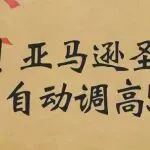 ！亚马逊圣
自动调高